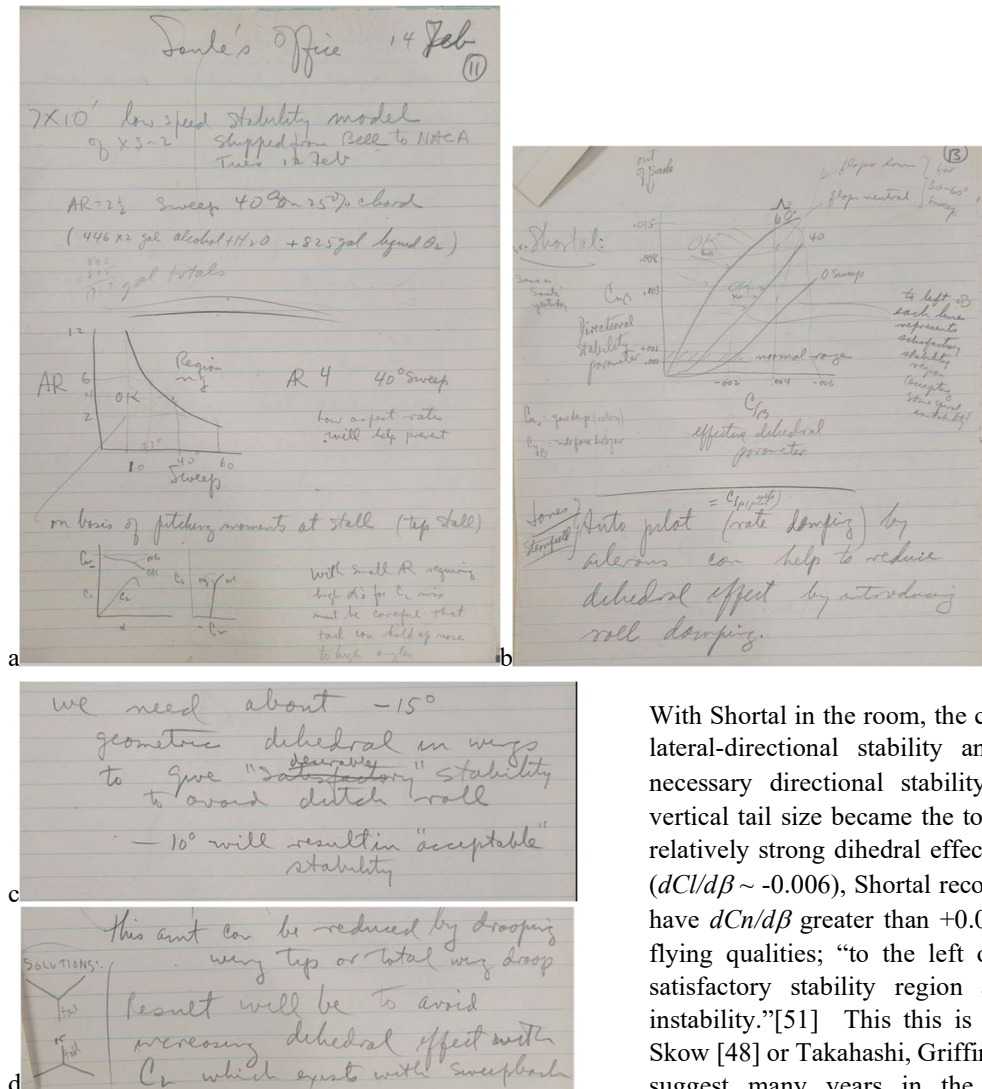 Soule's Office 14 Feb
11
7X10' low speed stability model
of XS-2 shipped from Bell to NACA
Tues 12 Feb
AR=2½ Sweep 40° on 25% chord
(446 x2 gal alcohol + H2O + 825 gal liquid O2)
gal totals
12
6
4
2
AR
OK
Region
ng
10
40
60
Sweep
AR 4 40° Sweep
Low aspect ratio
will help prevent
on basis of pitching moments at stall (tip stall)
Cm
CL
α
With small AR requiring
high α's for CL max
must be careful that
tail can hold up nose
to high angles
a
13
out
of scale
flaps down
flaps neutral
for
30-60°
Sweep
Shortal:
Same as
Soule
yesterday
.015
.008
.003
.001
Λ=
60°
40
0 Sweep
OK
60
OK
Cnβ
Directional
stability
parameter
normal range
-.002 .004 -.006
Clβ
effective dihedral
parameter
to left of
each line
represents
satisfactory
stability
region
(accepting
some spiral
instability)
Jones
Auto pilot (rate damping) by
ailerons can help to reduce
dihedral effect by introducing
roll damping.
b
we need about -15°
geometric dihedral in wings
to give "satisfactory" desirable stability
to avoid dutch roll
-10° will result in "acceptable"
stability
c
this amt can be reduced by drooping
wing tips or total wing droop
SOLUTIONS:
tail
or
tail
Result will be to avoid
increasing dihedral effect with
CL which exists with sweepback
d
With Shortal in the room, the c
lateral-directional stability an
necessary directional stability
vertical tail size became the to
relatively strong dihedral effec
(dCl/dβ ~ -0.006), Shortal reco
have dCn/dβ greater than +0.0
flying qualities; “to the left o
satisfactory stability region
instability.”[51] This this is
Skow [48] or Takahashi, Griffin
suggest many years in the